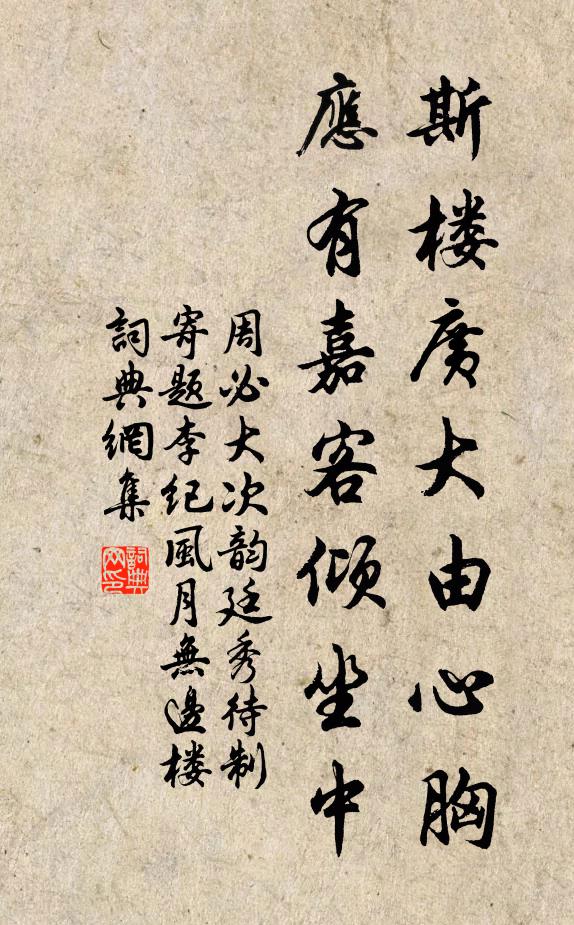 斯楼廣大由心胸
應有嘉客傾坐中
周必大次韵廷秀待制
寄题李纪風月無邊楼
詞典網集
詞典
网印